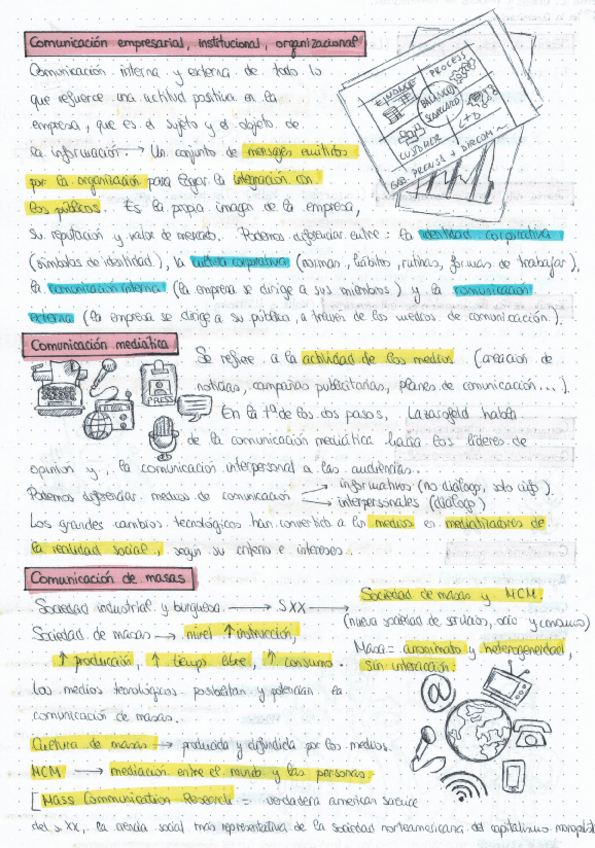 Comunicación empresarial, institucional, organizacional
Comunicación interna y externa de todo lo
que refuerce una actitud positiva en la
empresa, que es el sujeto y el objeto de
la información → Un conjunto de mensajes emitidos
por la organización para lograr la integración con
los públicos. Es la propia imagen de la empresa,
su reputación y valor de mercado. Podemos diferenciar entre: la identidad corporativa
(símbolos de identidad), la cultura corporativa (normas, hábitos, rutinas, formas de trabajar),
la comunicación interna (la empresa se dirige a sus miembros) y la comunicación
externa (la empresa se dirige a su público, a través de los medios de comunicación).
PROCESS
BALANCED
SCORECARD
CUSTOMER
L+D
PRENSA + DIRCOM
Comunicación mediática
Se refiere a la actividad de los medios (creación de
noticias, campañas publicitarias, planes de comunicación...).
PRESS
En la Tª de los dos pasos, Lazarsfeld habla
de la comunicación mediática hacia los líderes de
opinion y, la comunicación interpersonal a las audiencias.
Podemos diferenciar medios de comunicación → informativos (no diálogo, solo info).
→ interpersonales (diálogo)
Los grandes cambios tecnológicos han convertido a los medios en mediatizadores de
la realidad social, según su criterio e intereses.
Comunicación de masas
Sociedad industrial y burguesa → SXX → Sociedad de masas y MCM.
(nueva sociedad de servicios, ocio y consumo)
Sociedad de masas → nivel ↑ instrucción,
↑ producción, ↑ tiempo libre, ↑ consumo.
Masa = anonimato y heterogeneidad,
sin interacción.
Los medios tecnológicos posibilitan y potencian la
comunicación de masas.
Cultura de masas → producida y difundida por los medios.
MCM → mediación entre el mundo y las personas
[Mass Communication Research = verdadera american science
del s XX, la ciencia social más representativa de la sociedad norteamericana del capitalismo monopolista